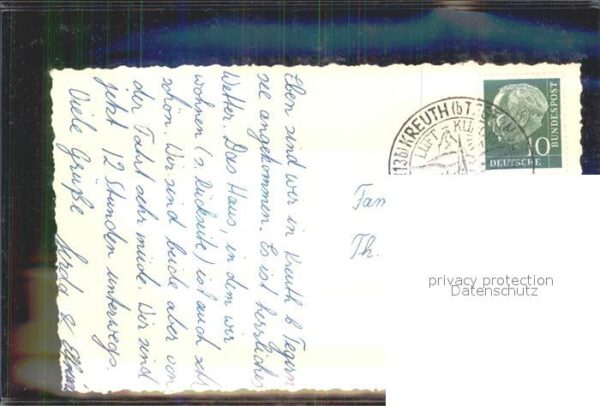 Eben sind wir in Kreuth b Tegern
see angekommen. Es ist herrliches
Wetter. Das Haus, in dem wir
wohnen (s. Rückseite) ist auch sehr
schön. Wir sind beide aber von
der Fahrt sehr müde. Wir sind
jetzt 12 Stunden unterwegs.
Viele Grüße
&
Fam
Th.
(13b) KREUTH (b
LUFT
KU
10
DEUTSCHE
BUNDESPOST
privacy protection
Datenschutz